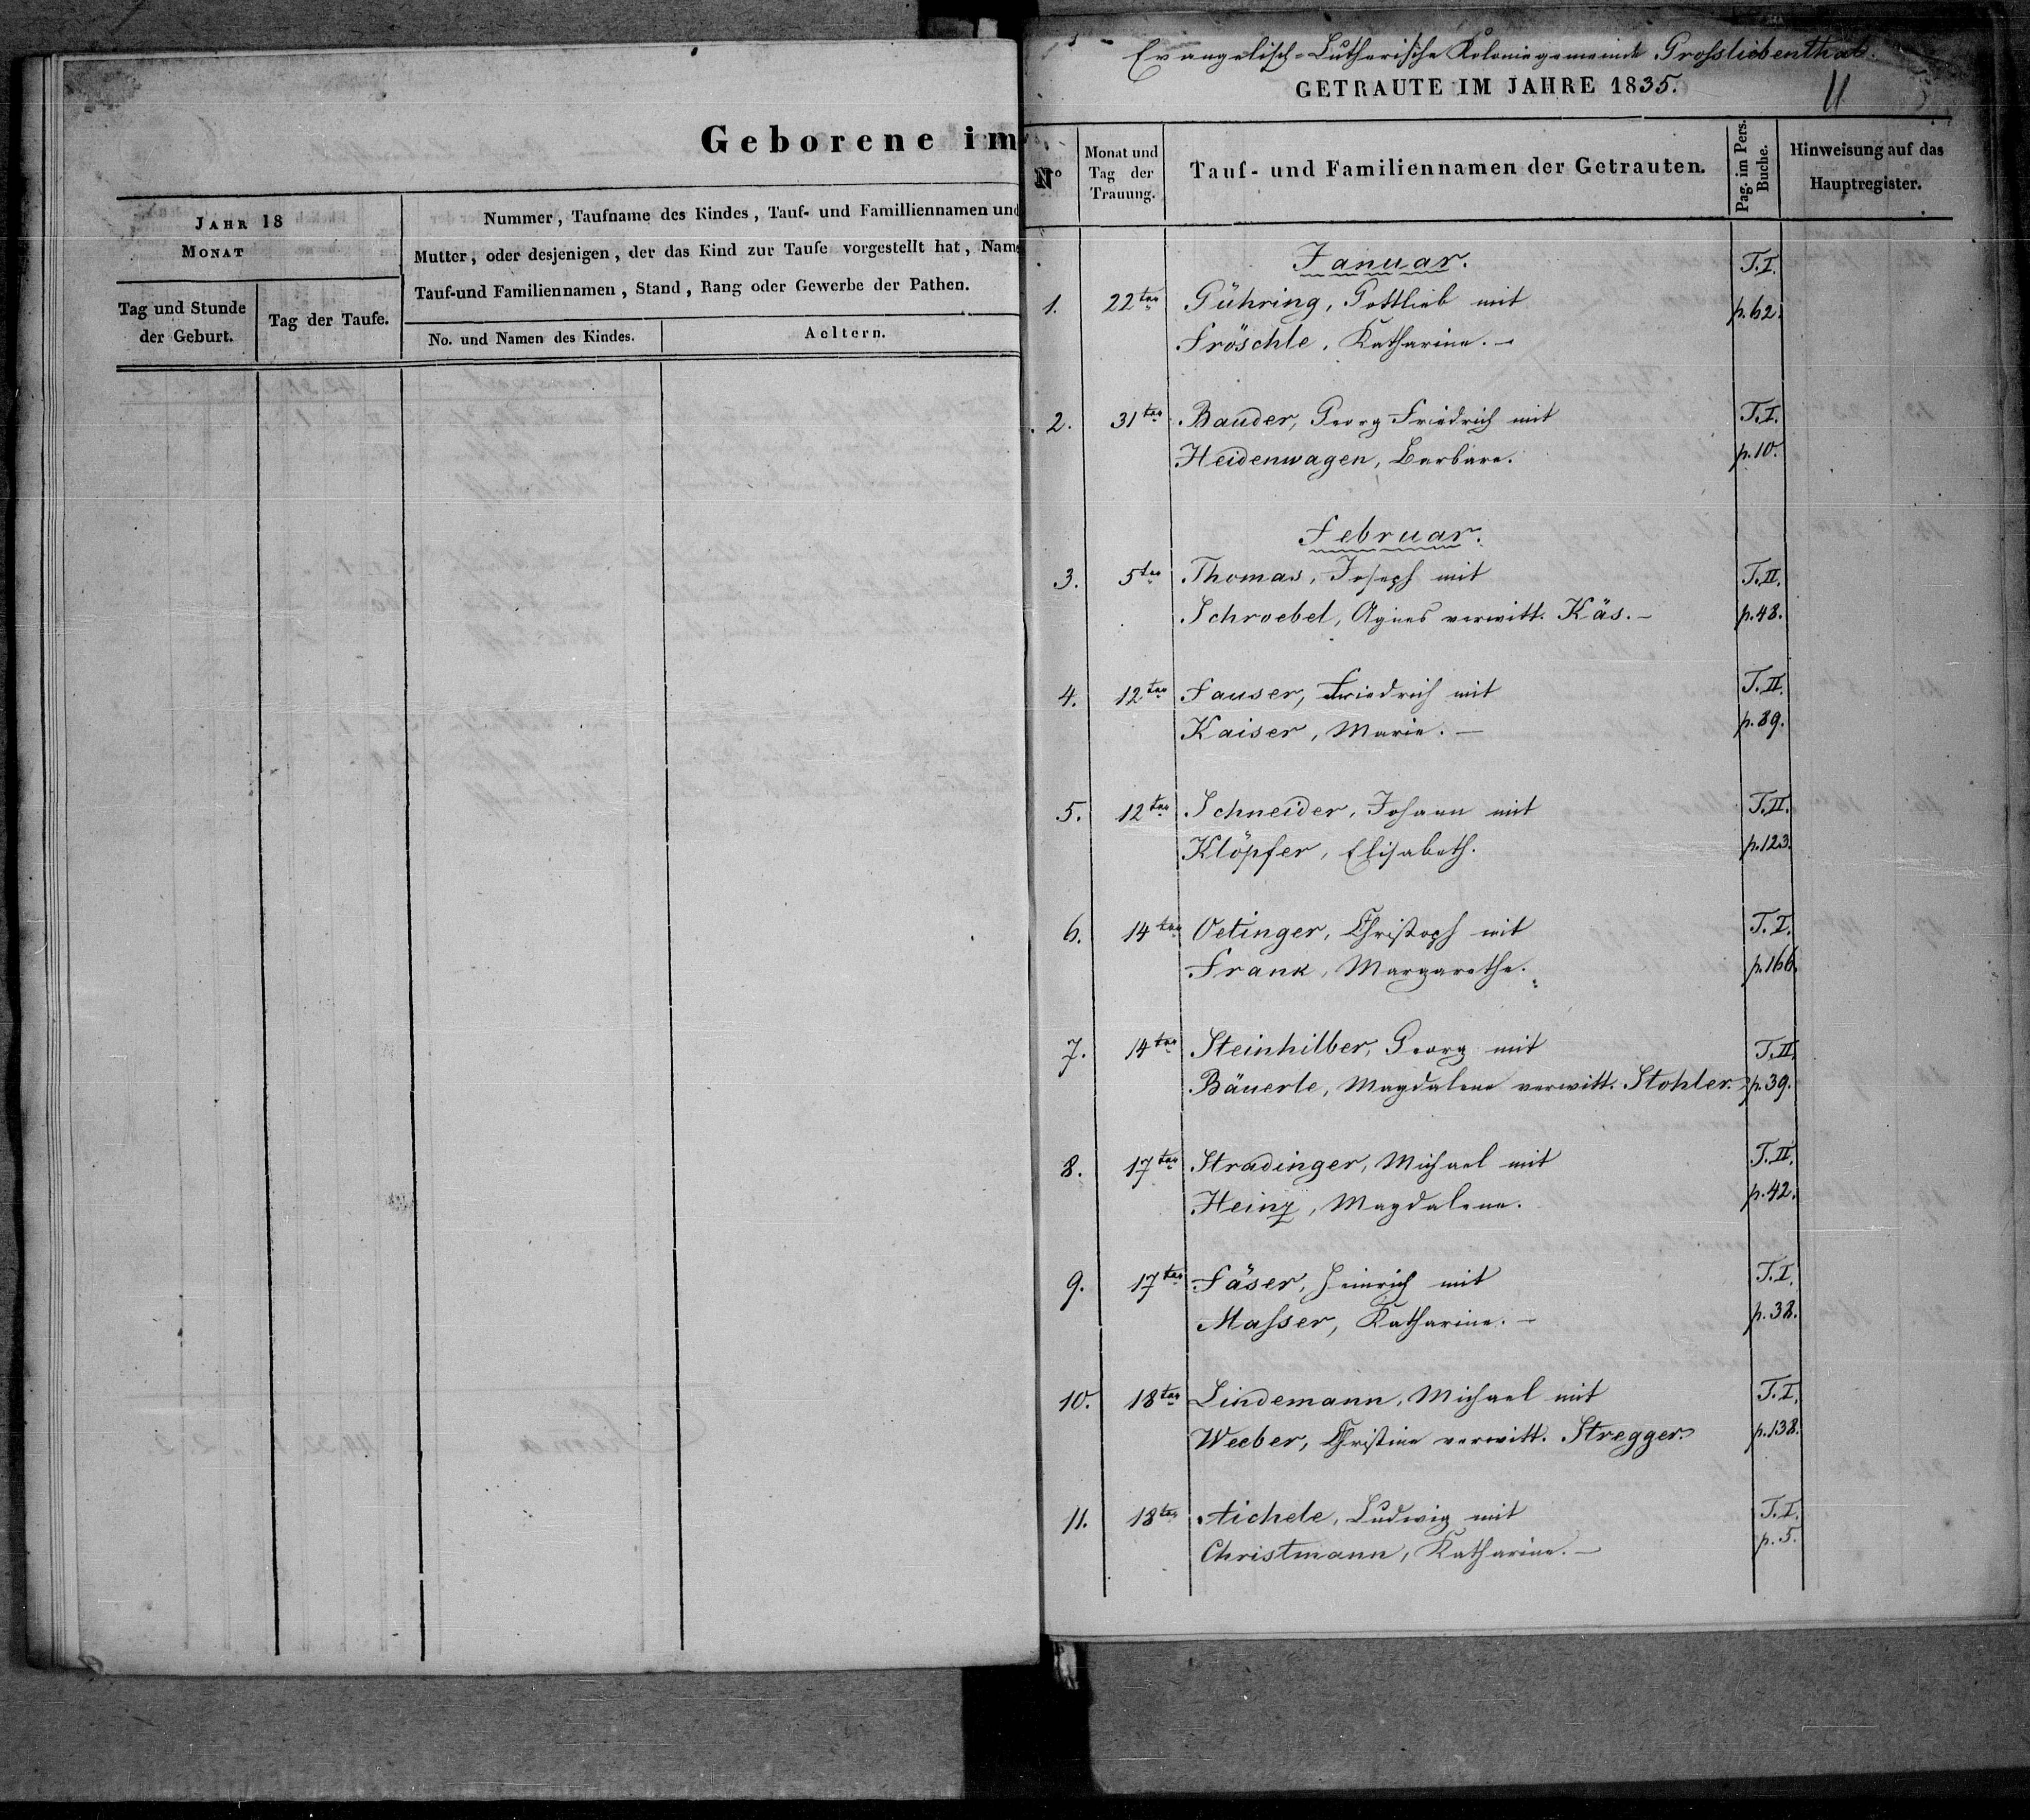 Geborene im
JAHR 18
MONAT
Tag und Stunde
der Geburt.
Tag der Taufe.
Nummer, Taufname des Kindes, Tauf- und Familliennamen und
Mutter, oder desjenigen, der das Kind zur Taufe vorgestellt hat, Name
Tauf-und Familiennamen, Stand, Rang oder Gewerbe der Pathen.
No. und Namen des Kindes.
Aeltern.
Evangelisch-Lutherische Koloniegemeinde Grossliebenthal.
GETRAUTE IM JAHRE 1835.
11
No
Monat und
Tag der
Trauung.
Tauf- und Familiennamen der Getrauten.
Pag. im Pers.
Buche.
Hinweisung auf das
Hauptregister.
Januar. T.I.
1. 22ten Gühring, Gottlieb mit p.62.
Fröschle, Katharine. –
2. 31ten Bauder, Georg Friedrich mit T.I.
Heidenwagen, Barbara. p.10.
Februar.
3. 5ten Thomas, Joseph mit T.II.
Schroebel, Agnes verwitt. Käs. – p.48.
4. 12ten Fauser, Friedrich mit T.II.
Kaiser, Marie. – p.89.
5. 12ten Schneider, Johann mit T.II.
Klöpfer, Elisabeth. p.123.
6. 14ten Oetinger, Christoph mit T.I.
Frank, Margarethe. p.166.
7. 14ten Steinhilber, Georg mit T.II.
Bäuerle, Magdalene verwitt. Stohler. p.39.
8. 17ten Stradinger, Michael mit T.II.
Heinz, Magdalena. p.42.
9. 17ten Fäser, Heinrich mit T.I.
Masser, Katharine. – p.38.
10. 18ten Lindemann, Michael mit T.I.
Weeber, Christine verwitt. Stregger. p.138.
11. 18ten Aichele, Ludwig mit T.I.
Christmann, Katharine. – p.5.